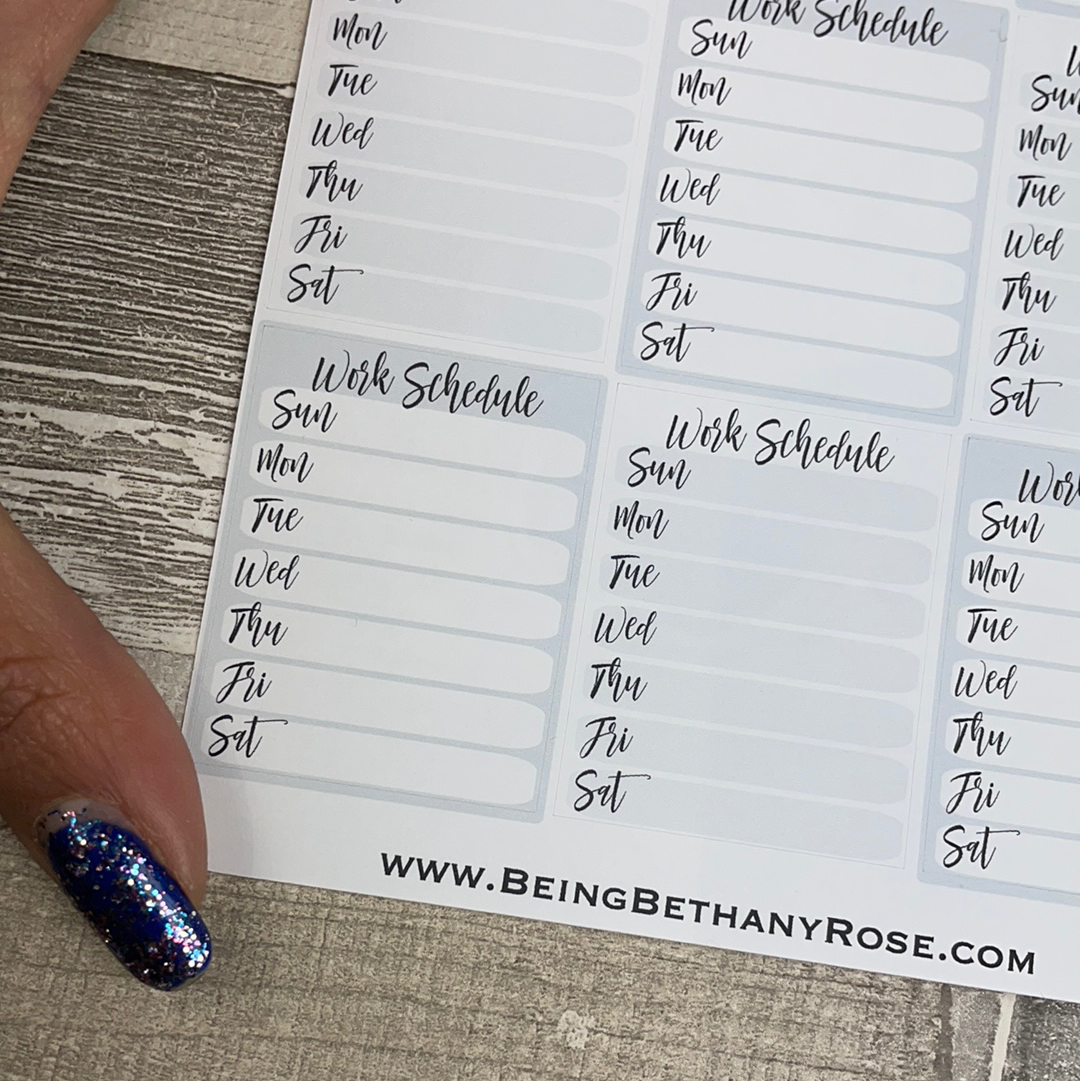 Mon
Tue
Wed
Thu
Fri
Sat
Work Schedule
Sun
Mon
Tue
Wed
Thu
Fri
Sat
Sun
Mon
Tue
Wed
Thu
Fri
Sat
Work Schedule
Sun
Mon
Tue
Wed
Thu
Fri
Sat
Work Schedule
Sun
Mon
Tue
Wed
Thu
Fri
Sat
Work
Sun
Mon
Tue
Wed
Thu
Fri
Sat
www.BeingBethanyRose.com